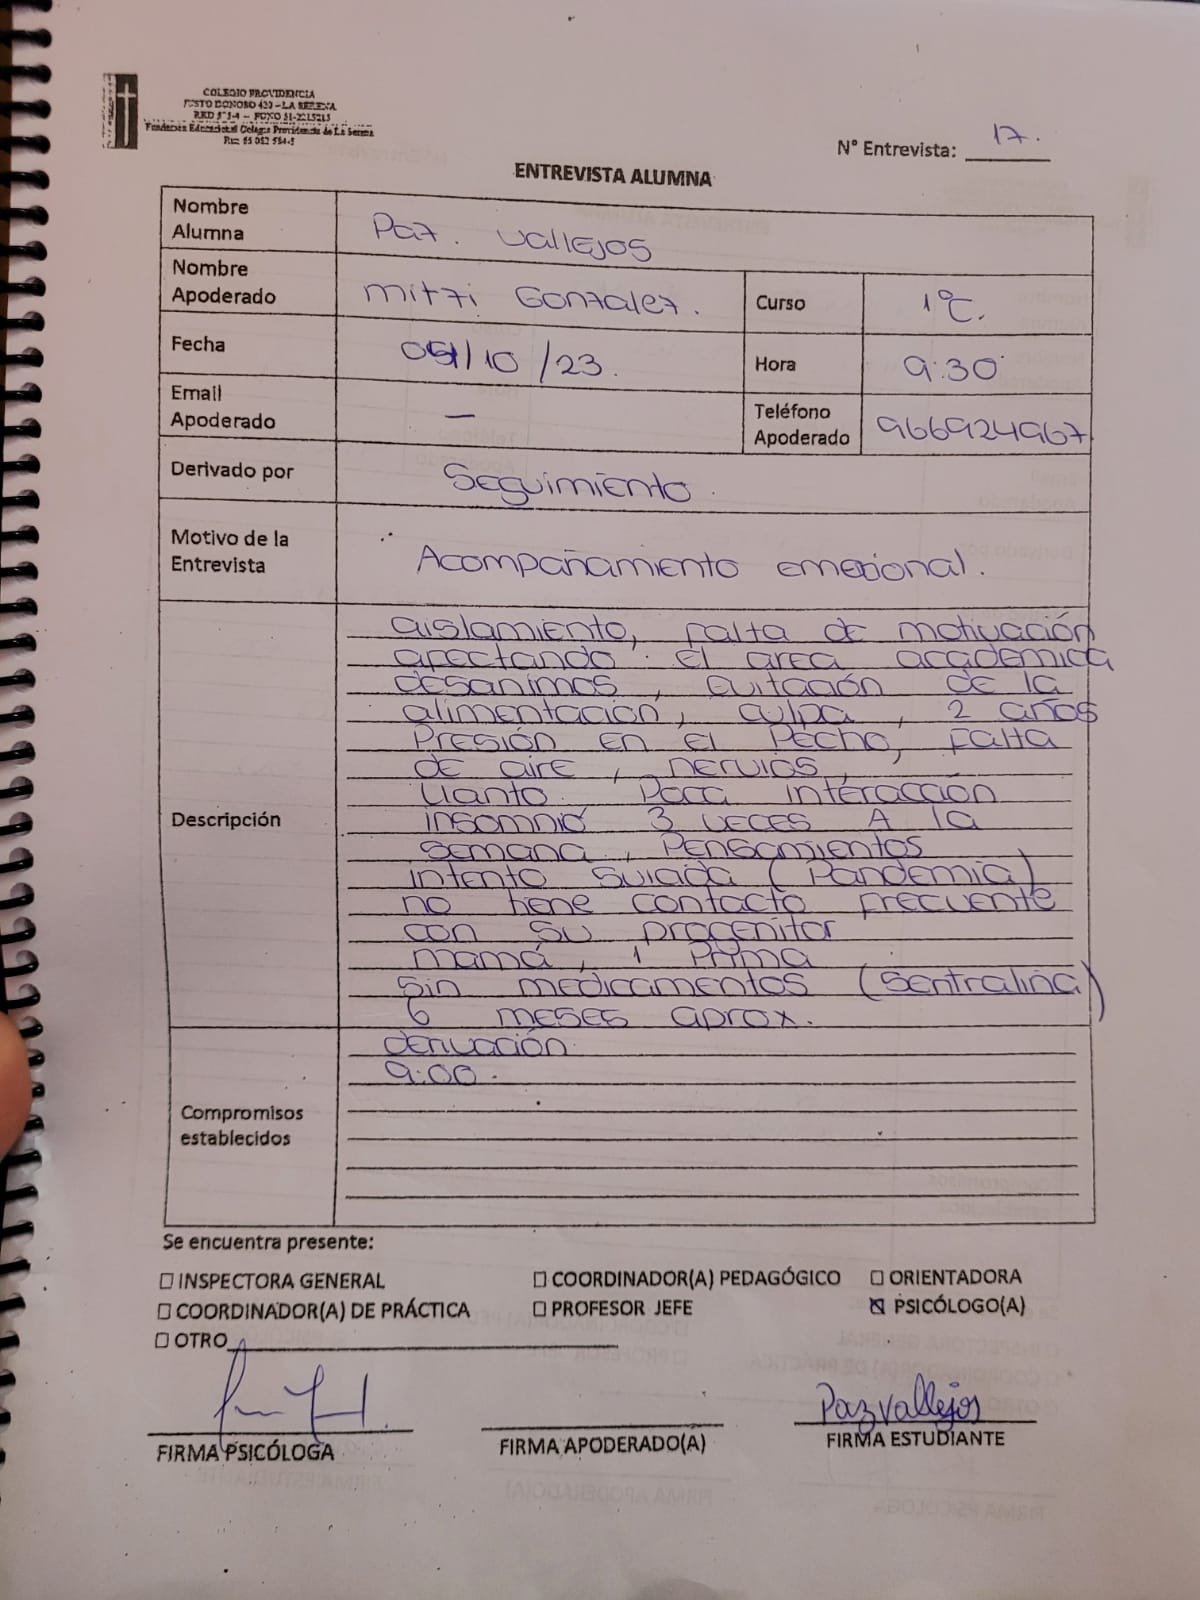 COLEGIO PROVIDENCIA
JUSTO DONOSO 420 – LA SERENA
Fundación Educacional Colegio Providencia de La Serena
N° Entrevista: 17.
ENTREVISTA ALUMNA
Nombre Alumna Paz. Vallejos
Nombre Apoderado Mitzi Gonzalez. Curso 1°C.
Fecha 05/10/23. Hora 9:30
Email Apoderado — Teléfono Apoderado 966924967
Derivado por Seguimiento.
Motivo de la Entrevista Acompañamiento emocional.
Descripción
aislamiento, falta de motivación
afectando el area academica
desanimos, evitación de la
alimentación, culpa, 2 años
Presión en el Pecho, falta
de aire, nervios,
llanto. Poca interacción
insomnio 3 veces A la
semana, Pensamientos
intento suicida (Pandemia)
no tiene contacto frecuente
con su progenitor
mamá, 1 Prima
Sin medicamentos (Sentralina)
6 meses aprox.
Compromisos establecidos
derivación.
9:00.
Se encuentra presente:
☐ INSPECTORA GENERAL ☐ COORDINADOR(A) PEDAGÓGICO ☐ ORIENTADORA
☐ COORDINADOR(A) DE PRÁCTICA ☐ PROFESOR JEFE ☒ PSICÓLOGO(A)
☐ OTRO
Paz Vallejos
FIRMA PSICÓLOGA FIRMA APODERADO(A) FIRMA ESTUDIANTE